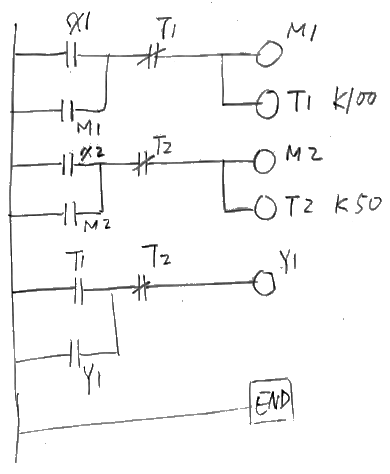 X1 T1 M1
M1 T1 K100
X2 T2 M2
M2 T2 K50
T1 T2 Y1
Y1
END